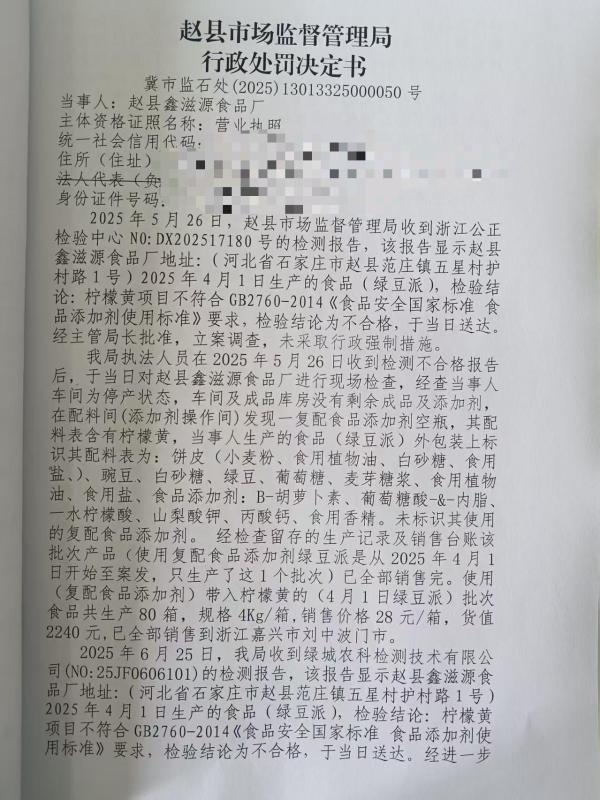 赵县市场监督管理局
行政处罚决定书
冀市监石处(2025)13013325000050 号
当事人：赵县鑫滋源食品厂
主体资格证照名称：营业执照
统一社会信用代码：
住所（住址）
法人代表（负
身份证件号码：
2025 年 5 月 26 日，赵县市场监督管理局收到浙江公正
检验中心 NO:DX202517180 号的检测报告，该报告显示赵县
鑫滋源食品厂地址：（河北省石家庄市赵县范庄镇五星村护
村路 1 号）2025 年 4 月 1 日生产的食品（绿豆派），检验结
论：柠檬黄项目不符合 GB2760-2014《食品安全国家标准 食
品添加剂使用标准》要求，检验结论为不合格，于当日送达。
经主管局长批准，立案调查，未采取行政强制措施。
我局执法人员在 2025 年 5 月 26 日收到检测不合格报告
后，于当日对赵县鑫滋源食品厂进行现场检查，经查当事人
车间为停产状态，车间及成品库房没有剩余成品及添加剂，
在配料间(添加剂操作间)发现一复配食品添加剂空瓶，其配
料表含有柠檬黄，当事人生产的食品（绿豆派）外包装上标
识其配料表为：饼皮（小麦粉、食用植物油、白砂糖、食用
盐、）、豌豆、白砂糖、绿豆、葡萄糖、麦芽糖浆、食用植物
油、食用盐、食品添加剂：B-胡萝卜素、葡萄糖酸-&-内脂、
一水柠檬酸、山梨酸钾、丙酸钙、食用香精。未标识其使用
的复配食品添加剂。 经检查留存的生产记录及销售台账该
批次产品（使用复配食品添加剂绿豆派是从 2025 年 4 月 1
日开始至案发，只生产了这 1 个批次）已全部销售完。使用
（复配食品添加剂）带入柠檬黄的（4 月 1 日绿豆派）批次
食品共生产 80 箱，规格 4Kg/箱,销售价格 28 元/箱，货值
2240 元,已全部销售到浙江嘉兴市刘中波门市。
2025 年 6 月 25 日，我局收到绿城农科检测技术有限公
司(NO:25JF0606101)的检测报告，该报告显示赵县鑫滋源食
品厂地址：（河北省石家庄市赵县范庄镇五星村护村路 1 号）
2025 年 4 月 1 日生产的食品（绿豆派），检验结论：柠檬黄
项目不符合 GB2760-2014《食品安全国家标准 食品添加剂使
用标准》要求，检验结论为不合格，于当日送达。经进一步